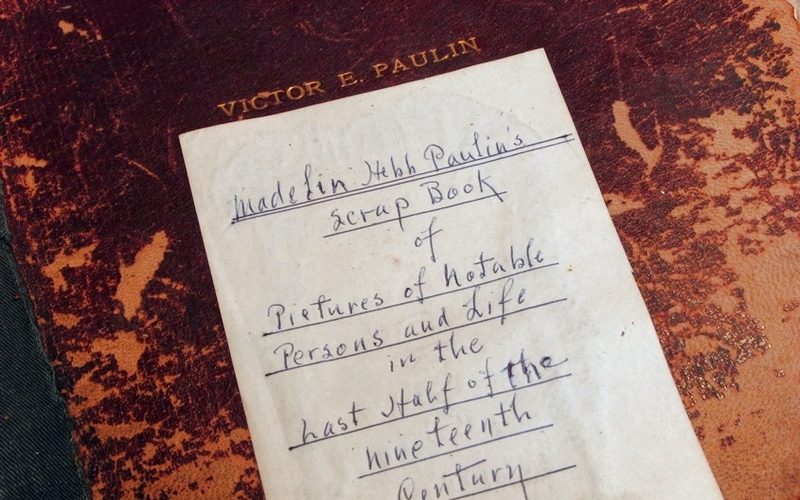 VICTOR E. PAULIN
Madelin Hebb Paulin's
Scrap Book
of
Pictures of Notable
Persons and Life
in the
Last Half of the
Nineteenth
Century